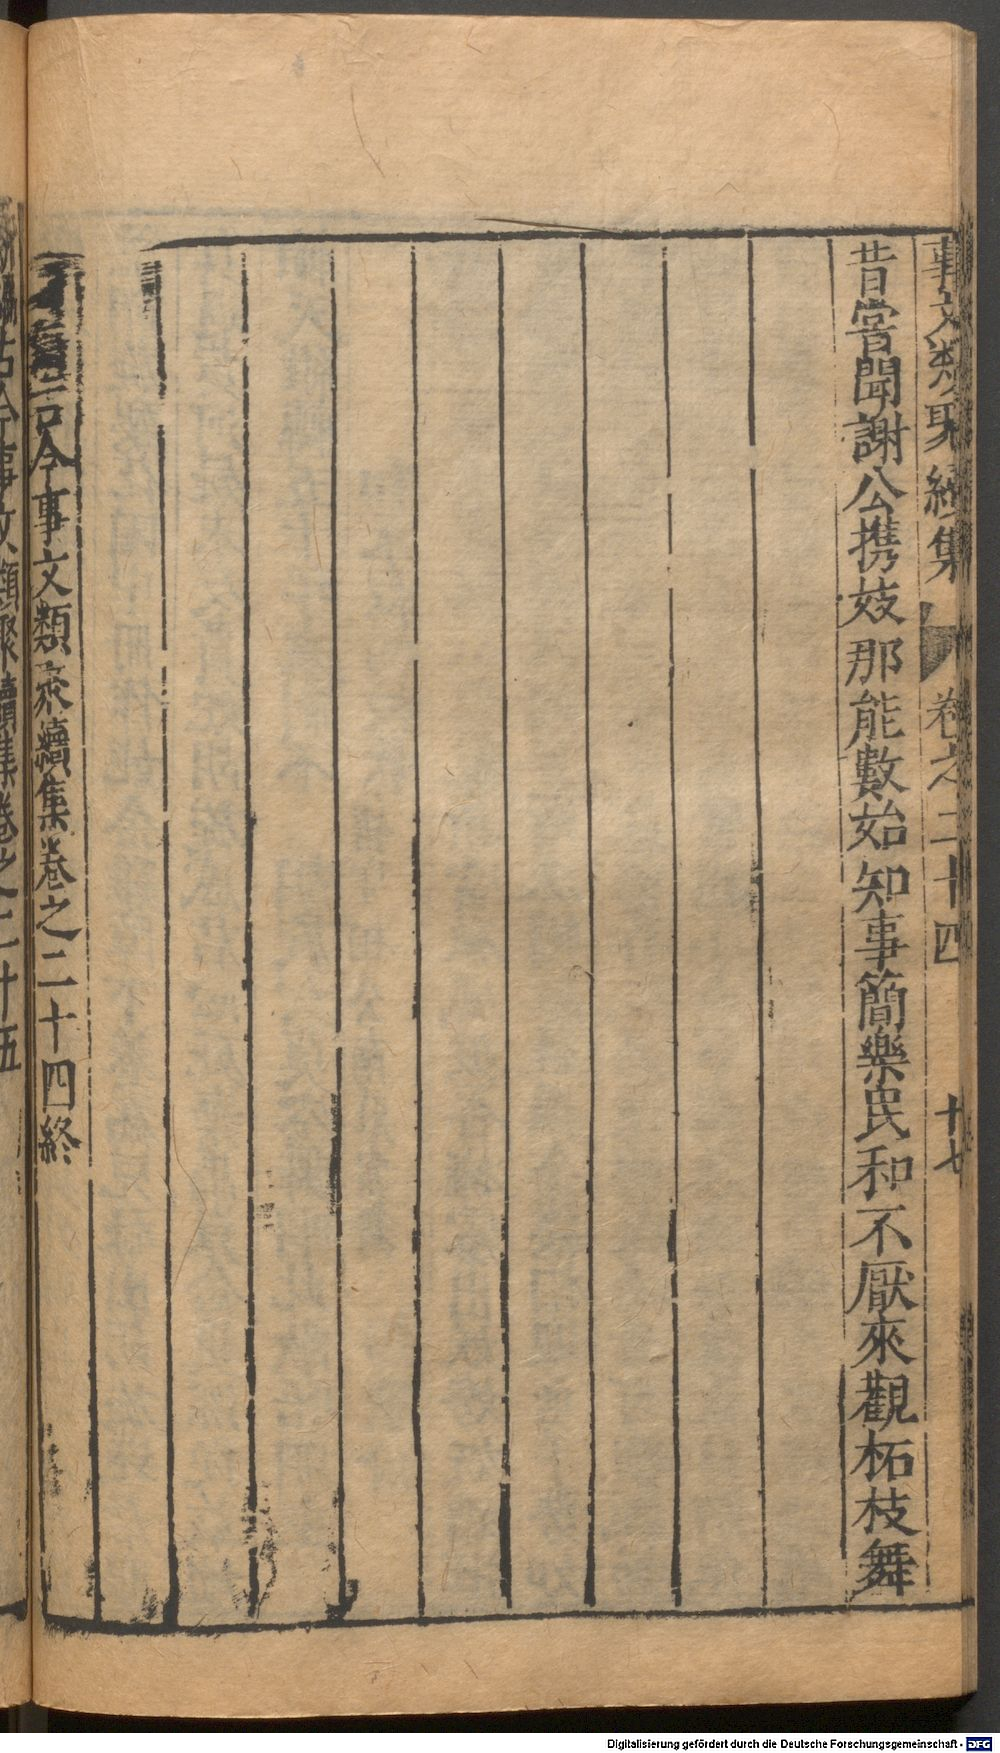 事文類聚續集 卷之二十四 十七
昔嘗聞謝公携妓那能數始知事簡樂民和不厭來觀柘枝舞
古今事文類聚續集卷之二十四終
古今事文類聚續集卷之二十五
Digitalisierung gefördert durch die Deutsche Forschungsgemeinschaft - DFG